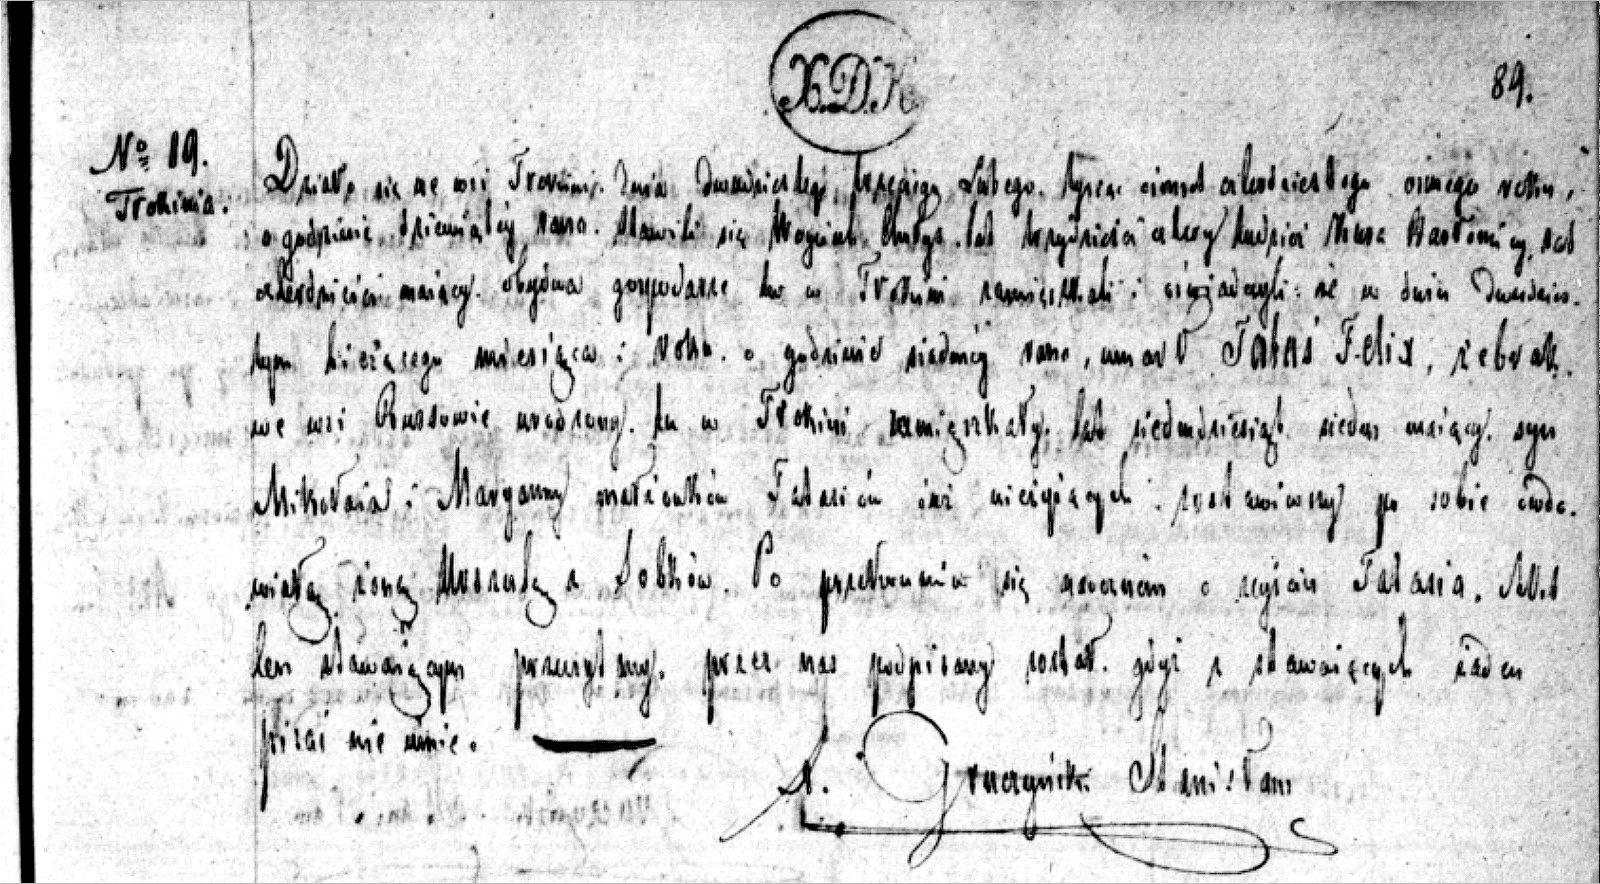 X.D.K.
89.
No 19.
Trokinia.
Działo się we wsi Trokini. dnia dwudziestego trzeciego Lutego. tysiąc ośmset czterdziestego osmego roku,
o godzinie dziewiątey rano. Stawili się Woyciech lat trzydzieści cztery tudzież Bartłomiey, lat
czterdzieści maiący. obydwa gospodarze tu w Trokini zamięszkali i oświadczyli: że w dniu dwudzies-
tym bieżącego miesiąca i roku. o godzinie siodmey rano, umarł Tataś Felix, żebrak.
we wsi urodzony. tu w Trokini zamięszkały. lat siedmdziesiąt siedm maiący. syn
Mikołaia i Maryanny małżonków Tatasiów iuż nieżyiących. zostawiwszy po sobie owdo-
wiałą żonę z Sobków. Po przekonaniu się naocznem o zeyściu Tatasia. Akt
ten stawaiącym przeczytany. przez nas podpisany został. gdyż z stawaiących żaden
pisać nie umie.
X. Gruczyński Stanisław